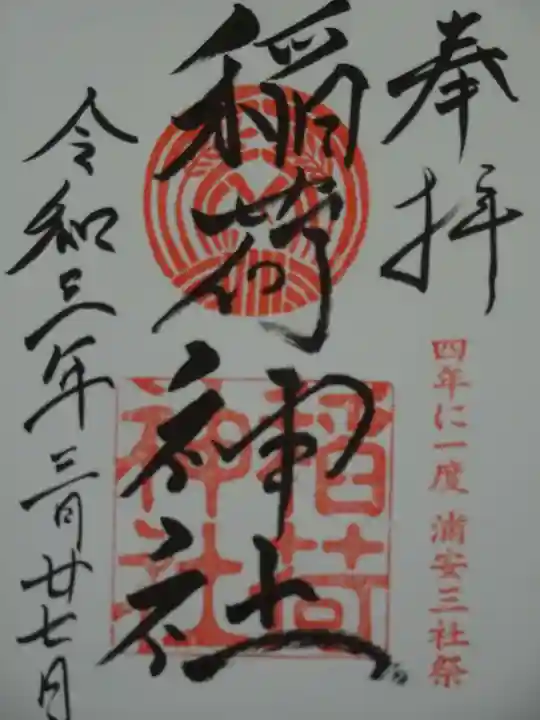 奉拝
四年に一度 浦安三社祭
稲荷神社
稲荷
神社
令和三年三月廿七日